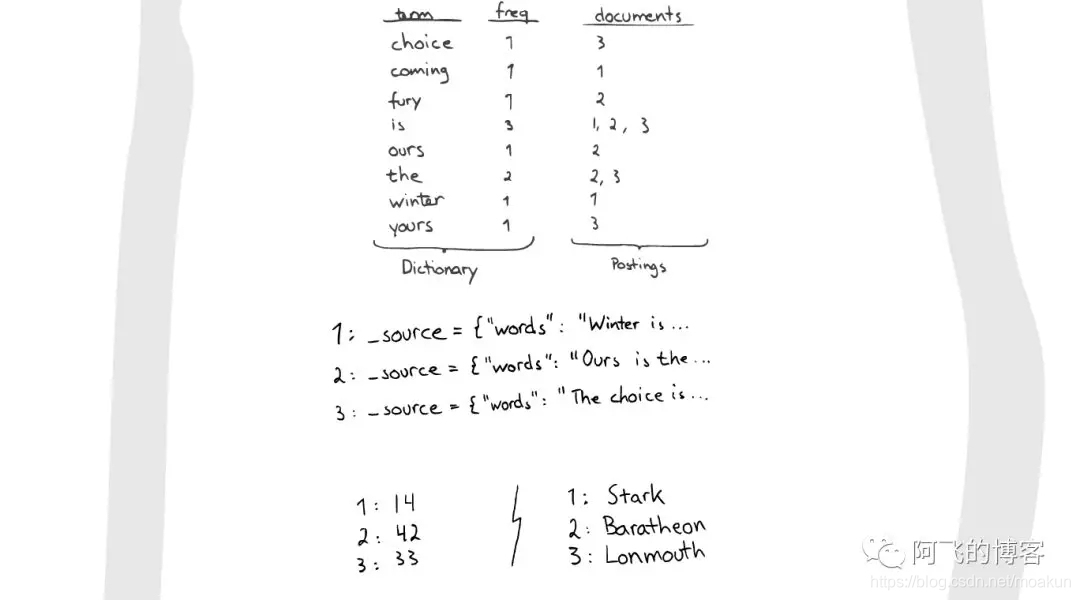 term freq documents
choice 1 3
coming 1 1
fury 1 2
is 3 1, 2, 3
ours 1 2
the 2 2, 3
winter 1 1
yours 1 3
Dictionary Postings
1: _source = {"words": "Winter is ...
2: _source = {"words": "Ours is the ...
3: _source = {"words": "The choice is ...
1: 14 1: Stark
2: 42 2: Baratheon
3: 33 3: Lonmouth
阿飞的博客
https://blog.csdn.net/moakun